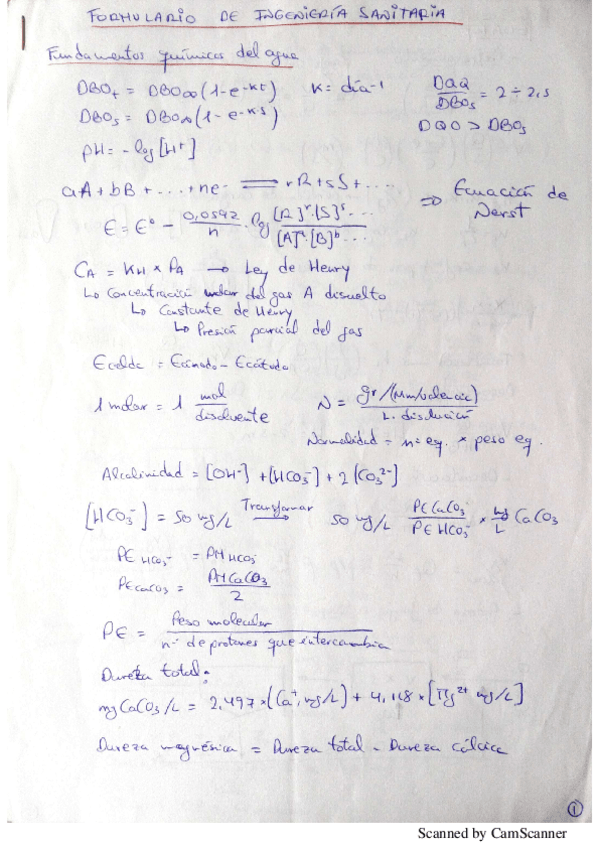 FORMULARIO DE INGENIERÍA SANITARIA
Fundamentos químicos del agua
DBOt = DBO∞(1-e^-kt) K = día^-1 DQO/DBO5 = 2 ÷ 2,5
DBO5 = DBO∞(1-e^-k5) DQO > DBO5
pH = -log[H+]
aA + bB + ... + ne- ⇌ rR + sS + ... ⇒ Ecuación de Nerst
E = E° - 0,0592/n · log [R]^r·[S]^s.../[A]^a·[B]^b...
CA = KH × PA → Ley de Henry
↳ Concentración molar del gas A disuelto
↳ Constante de Henry
↳ Presión parcial del gas
Ecelda = Eánodo - Ecátodo
1 molar = 1 mol/disolvente N = gr/(Mm/valencia)/L. disolución
Normalidad = nº eq. × peso eq.
Alcalinidad = [OH-] + [HCO3-] + 2[CO3^2-]
[HCO3-] = 50 mg/L Transformar → 50 mg/L PECaCO3/PEHCO3- × mg/L CaCO3
PE HCO3- = PM HCO3-
PE CaCO3 = PM CaCO3/2
PE = Peso molecular/nº de protones que intercambia
Dureza total:
mg CaCO3/L = 2,497×[Ca+, mg/L] + 4,118×[Mg2+ mg/L]
Dureza magnésica = Dureza total - Dureza cálcica
1
Scanned by CamScanner